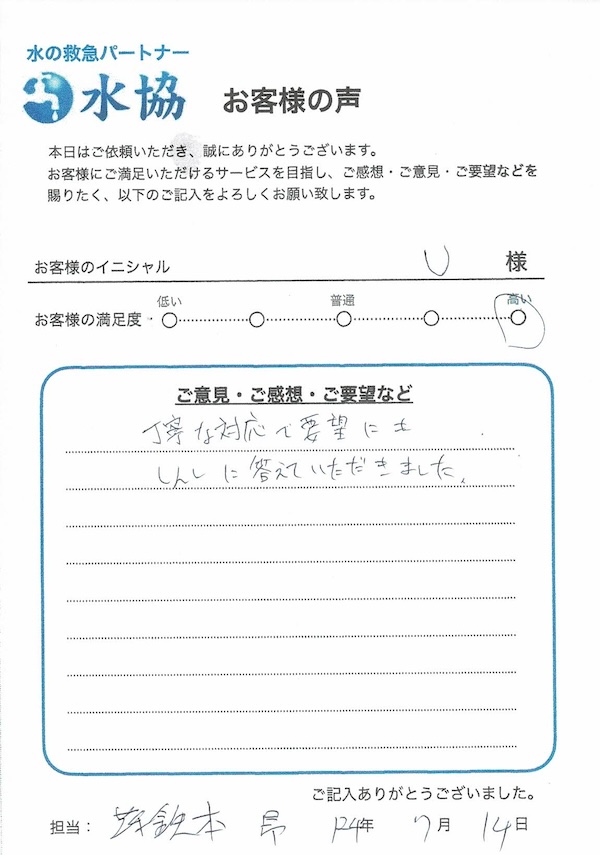 水の救急パートナー
水協 お客様の声
本日はご依頼いただき、誠にありがとうございます。
お客様にご満足いただけるサービスを目指し、ご感想・ご意見・ご要望などを
賜りたく、以下のご記入をよろしくお願い致します。
お客様のイニシャル U 様
低い 普通 高い
お客様の満足度
ご意見・ご感想・ご要望など
丁寧な対応で要望にも
しんしに答えていただきました。
ご記入ありがとうございました。
担当: 本 昂 年 7月 14日